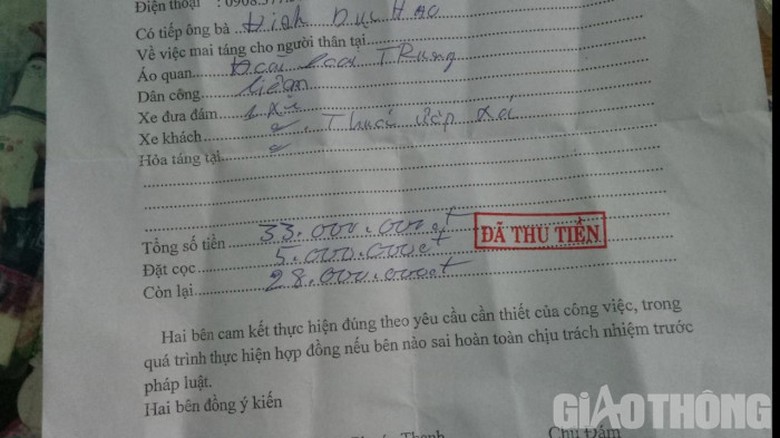 Điện thoại : 0908.577
Có tiếp ông bà Đinh Dục Học
Về việc mai táng cho người thân tại
Áo quan Đcai loai TRung
Dân công liệm
Xe đưa đám 1 xe
Xe khách 2, Thuốc ướp xác
Hỏa táng tại
Tổng số tiền 33.000.000đ
ĐÃ THU TIỀN
Đặt cọc 5.000.000đ
Còn lại 28.000.000đ
Hai bên cam kết thực hiện đúng theo yêu cầu cần thiết của công việc, trong
quá trình thực hiện hợp đồng nếu bên nào sai hoàn toàn chịu trách nhiệm trước
pháp luật.
Hai bên đồng ý kiến
Thanh Chủ Đám
GIAOTHÔNG